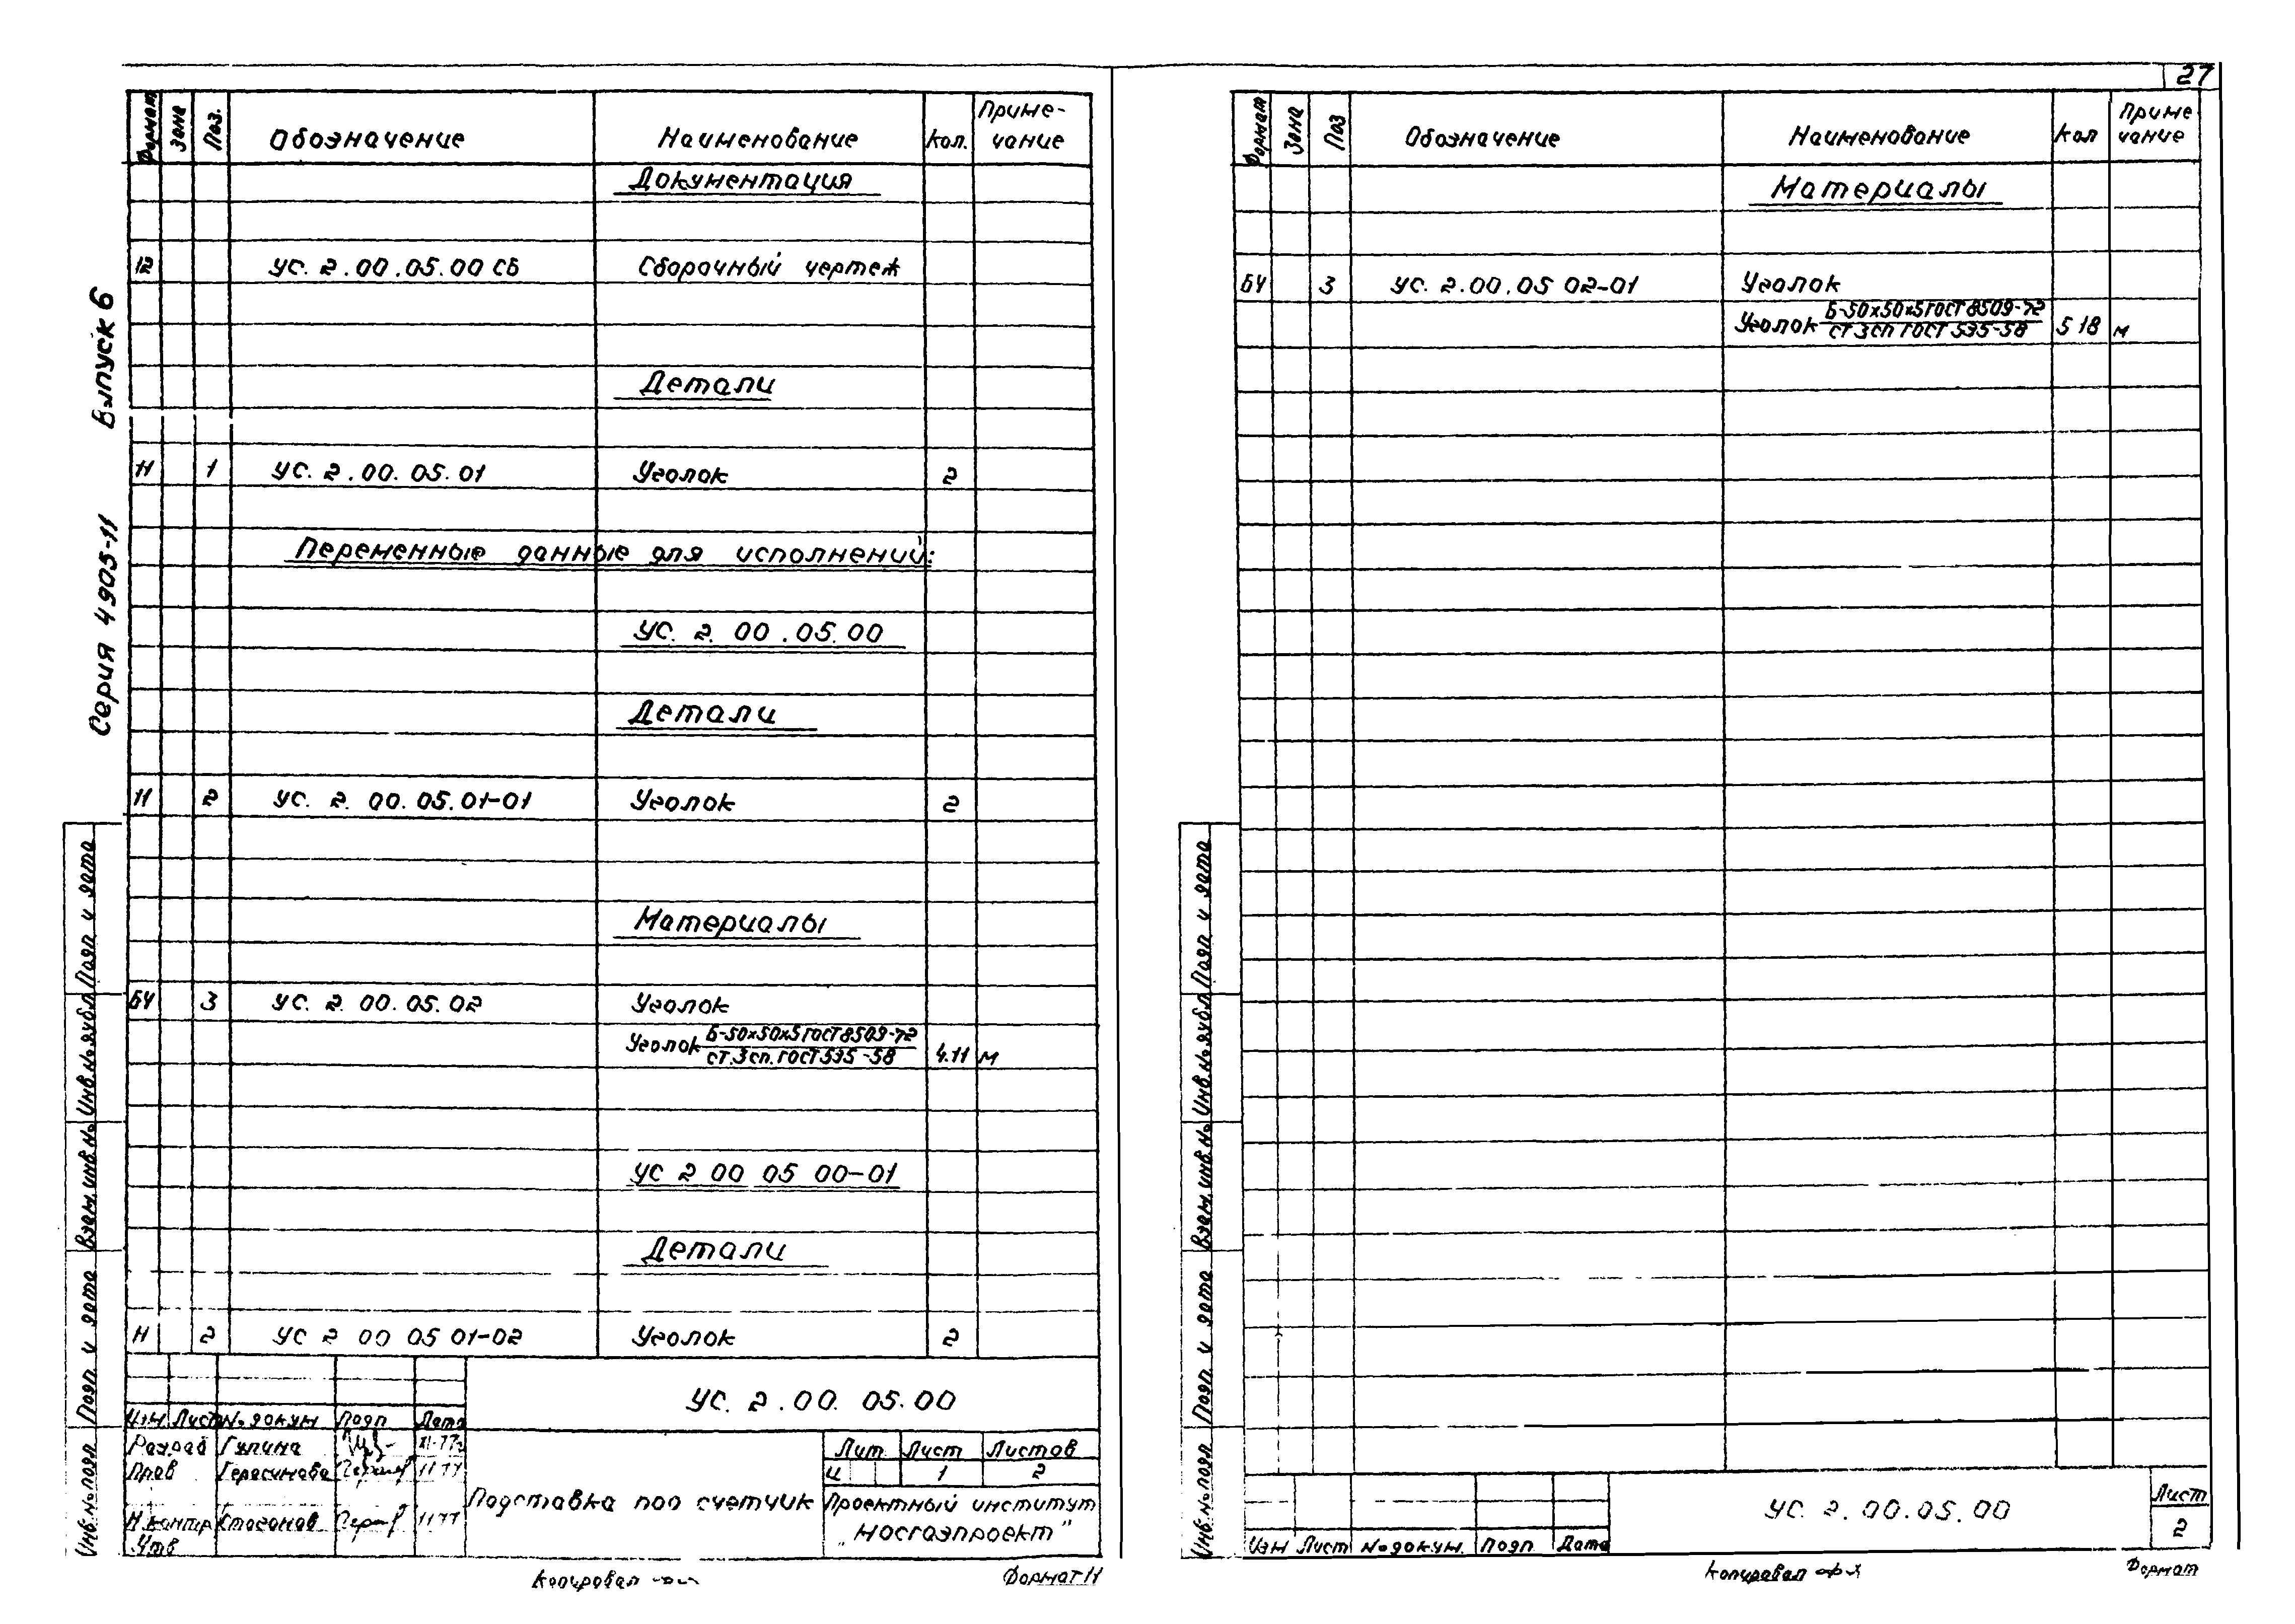 27
Серия 4905-11 Выпуск 6
Формат Зона Поз. Обозначение Наименование Кол. Приме-
чание
Документация
12 УС. 2.00.05.00 СБ Сборочный чертеж
Детали
11 1 УС. 2.00.05.01 Уголок 2
Переменные данные для исполнений:
УС. 2.00.05.00
Детали
11 2 УС. 2.00.05.01-01 Уголок 2
Материалы
БЧ 3 УС. 2.00.05.02 Уголок
Уголок Б-50х50х5 ГОСТ 8509-72
Ст.3сп. ГОСТ 535-58 4.11 м
УС 2 00 05 00-01
Детали
11 2 УС 2 00 05 01-02 Уголок 2
УС. 2.00.05.00
Изм. Лист № докум. Подп Дата
Разраб Гулина XI-77г
Пров Герасимова 11 77
Н.контр Стаганов 11 77
Утв
Подставка под счетчик
Лит. Лист Листов
И 1 2
Проектный институт
"Мосгазпроект"
Копировал
Формат 11
Инв.№ подл Подп. и дата Взам. инв.№ Инв.№ дубл Подп. и дата
Формат Зона Поз Обозначение Наименование Кол Приме
чание
Материалы
БЧ 3 УС. 2.00.05 02-01 Уголок
Уголок Б-50х50х5 ГОСТ 8509-72
Ст 3сп ГОСТ 535-58 5 18 м
Инв.№ подл Подп. и дата Взам. инв.№ Инв.№ дубл Подп. и дата
УС. 2.00.05.00
Лист
2
Изм Лист № докум. Подп Дата
Копировал
Формат